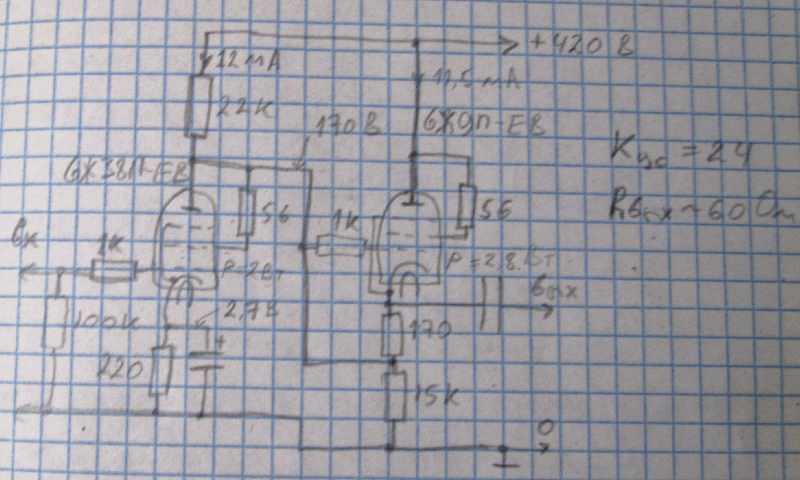 +420 В
12 мА
11,5 мА
22к
170В
6Ж9П-ЕВ
6Ж38П-ЕВ
Kус = 24
Rвых ~ 60 Ом
56
56
1к
Вх
1к
P=2Вт
P=2,8 Вт
Вых
100к
2,7В
+
170
220
15к
0